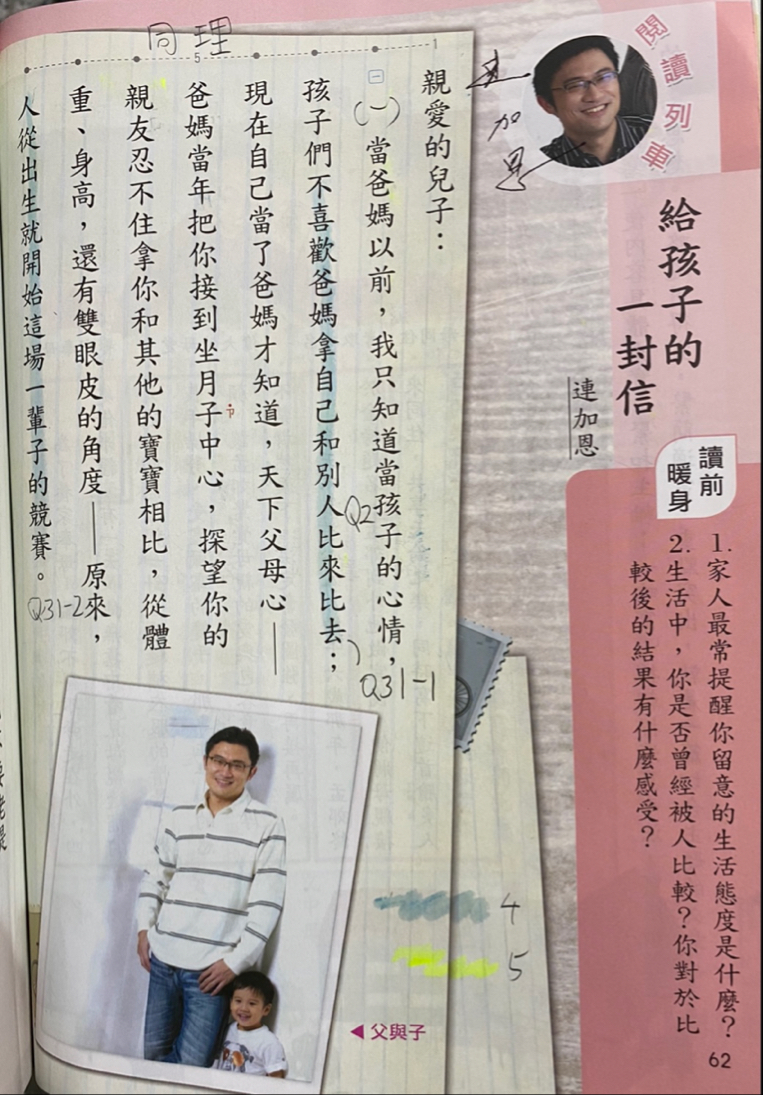 閱讀列車
給孩子的
一封信
連加恩
連加恩
讀前
暖身
1. 家人最常提醒你留意的生活態度是什麼？
2. 生活中，你是否曾經被人比較？你對於比
較後的結果有什麼感受？
62
同理
1
5
親愛的兒子：
一
(一)當爸媽以前，我只知道當孩子的心情，
Q2
Q31-1
孩子們不喜歡爸媽拿自己和別人比來比去；)
現在自己當了爸媽才知道，天下父母心——
爸媽當年把你接到坐月子中心，探望你的
親友忍不住拿你和其他的寶寶相比，從體
重、身高，還有雙眼皮的角度——原來，
人從出生就開始這場一輩子的競賽。
Q31-2
4
5
◀父與子